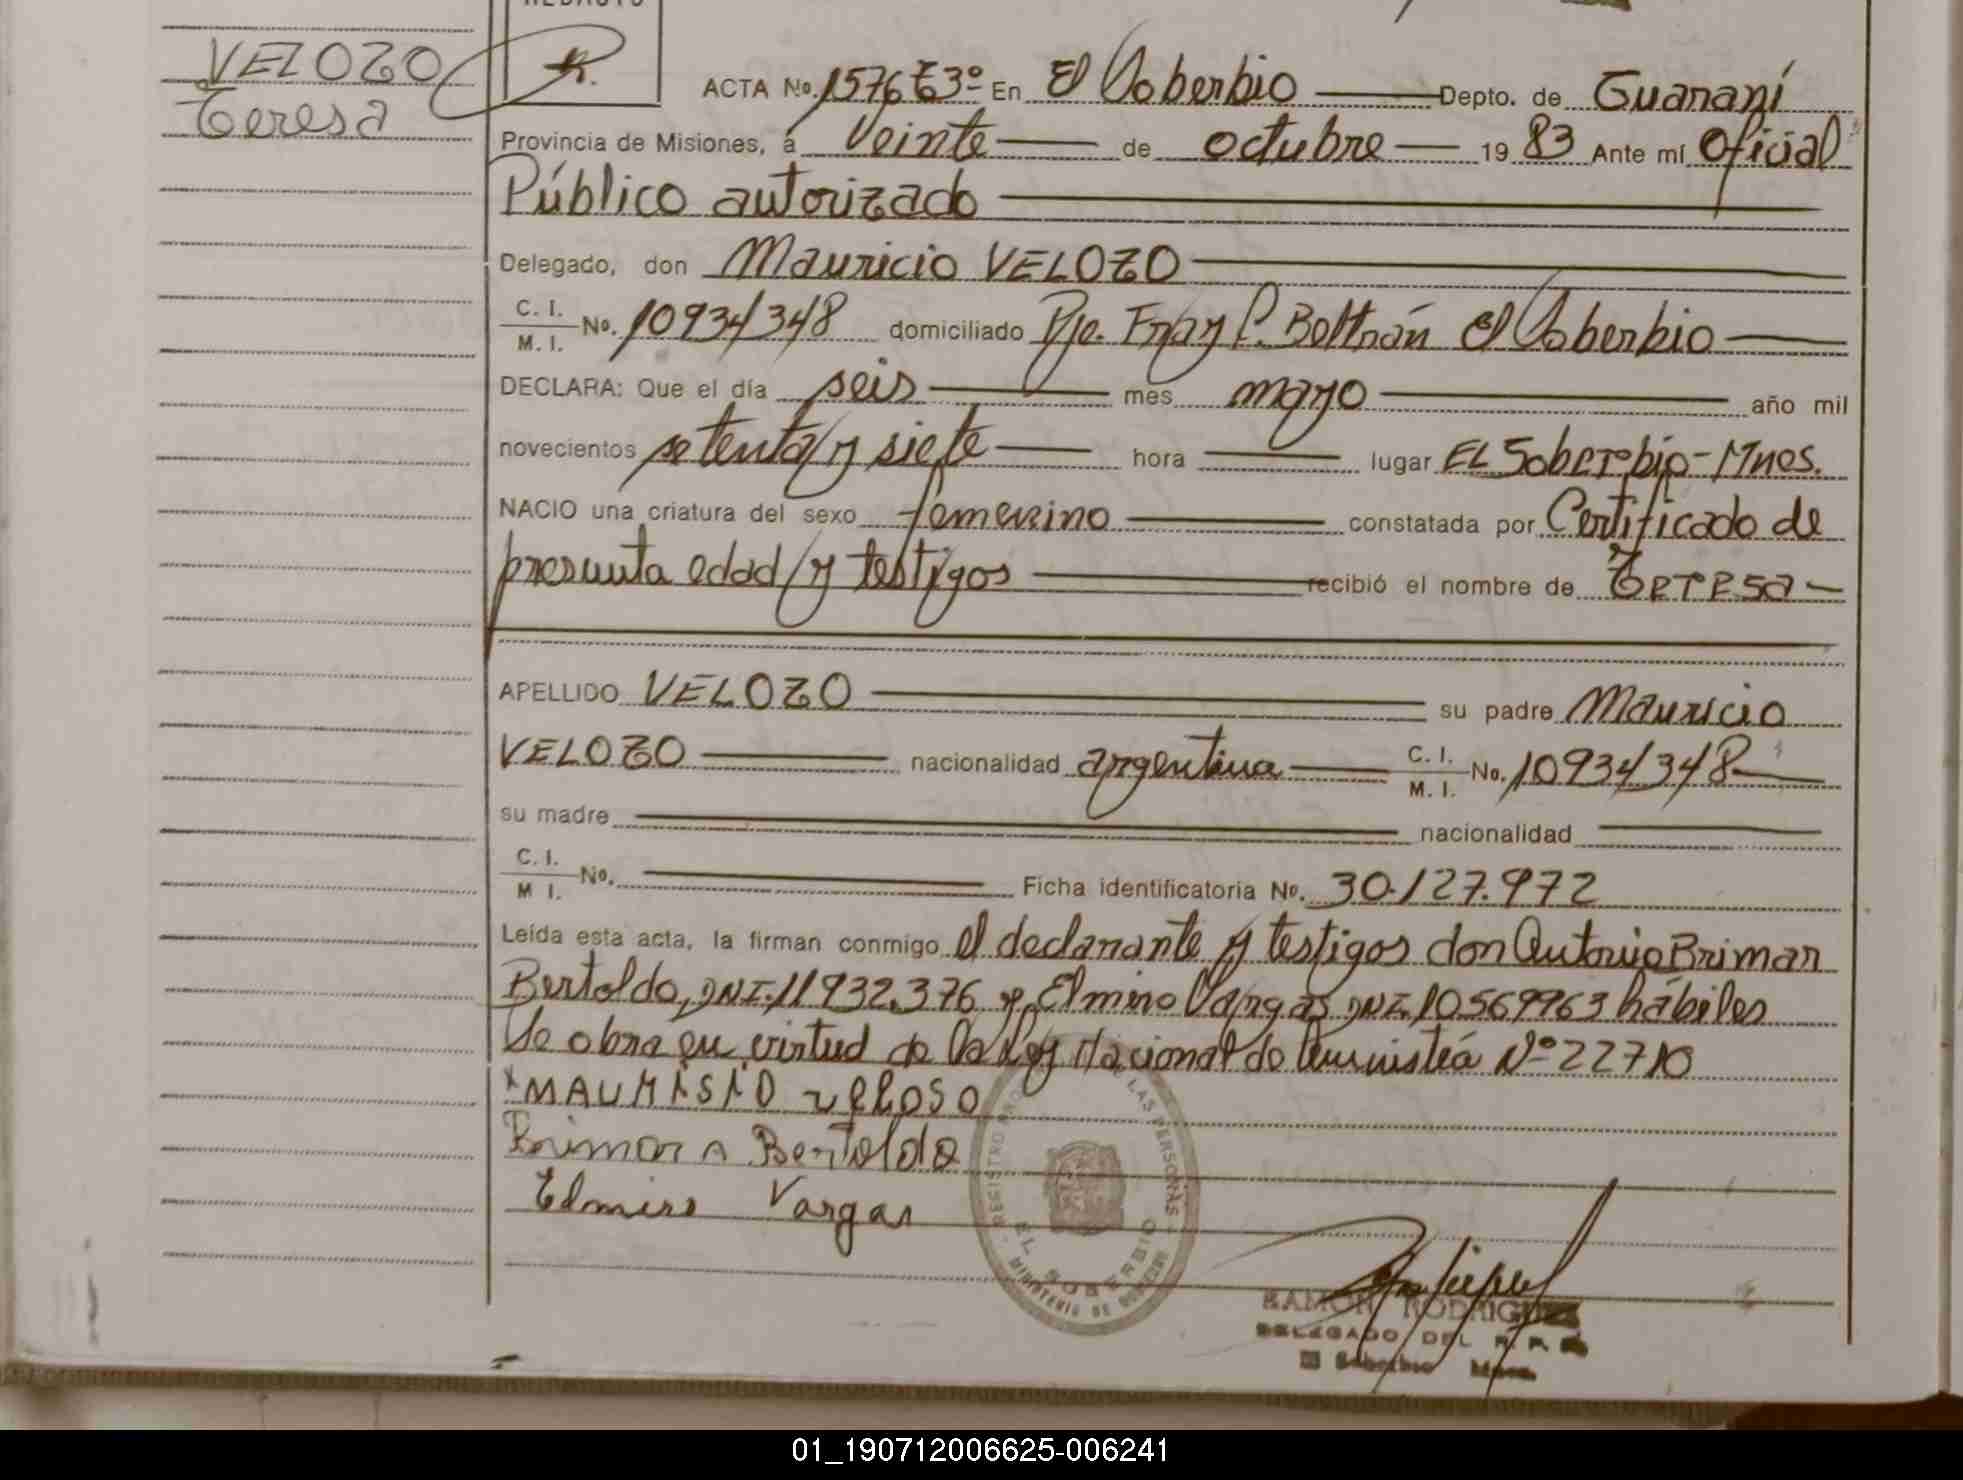 REDACTÓ
VELOZO
Teresa
ACTA No. 1576 T3º En El Soberbio Depto. de Guaraní
Provincia de Misiones, á Veinte de octubre 1983 Ante mí Oficial
Público autorizado
Delegado, don Mauricio VELOZO
C. I. / M. I. No. 10934348 domiciliado Pje. Fray L. Beltrán El Soberbio
DECLARA: Que el día seis mes mayo año mil
novecientos setenta y siete hora lugar EL Soberbio-Mnes.
NACIO una criatura del sexo femenino constatada por Certificado de
presunta edad y testigos recibió el nombre de Teresa
APELLIDO VELOZO su padre Mauricio
VELOZO nacionalidad argentina C. I. / M. I. No. 10934348
su madre nacionalidad
C. I. / M I. No. Ficha identificatoria No. 30.127.972
Leída esta acta, la firman conmigo el declarante y testigos don Antonio Brimar
Bertoldo, DNI. 11932.376 y Elmiro Vargas DNI. 10569963 hábiles
Se obra en virtud de la Ley Nacional de Amnistía Nº 22710
x MAURISIO VELOSO
Brimar A Bertoldo
Elmiro Vargas
REGISTRO PROV. DE LAS PERSONAS
EL SOBERBIO
MINISTERIO DE GOBIERNO
RAMON RODRIGUEZ
DELEGADO DEL R. P.
El Soberbio Mnes.
01_190712006625-006241